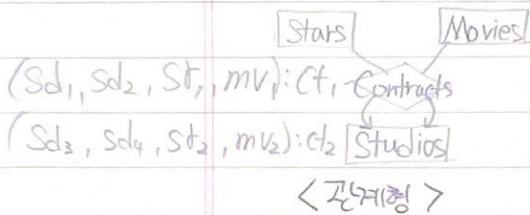 Stars Movies
(Sd₁, Sd₂, St₁, mv₁): Ct₁ Contracts
(Sd₃, Sd₄, St₂, mv₂): Ct₂ Studios
<관계형>